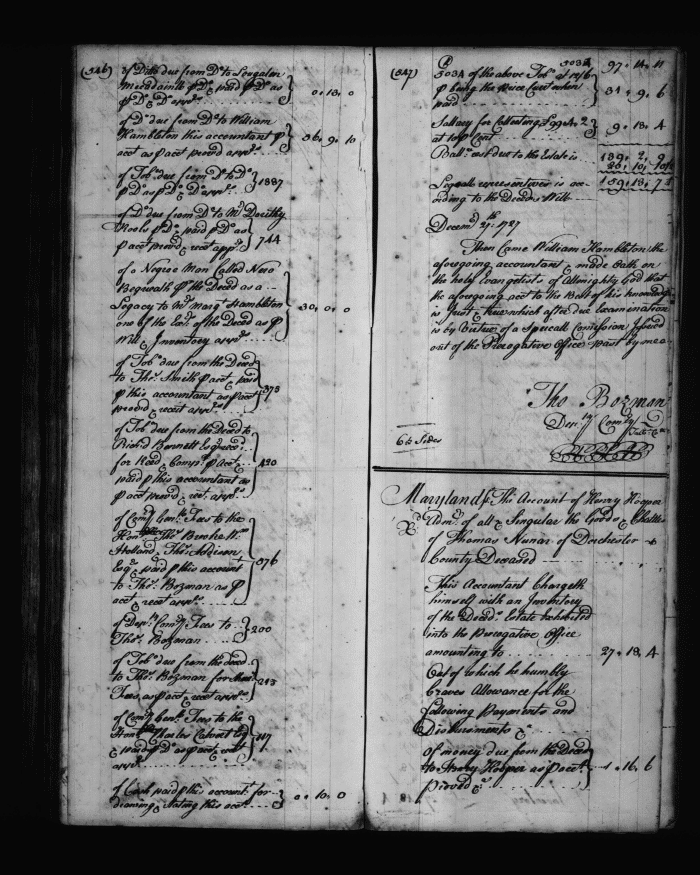 (546)
of Ditto due from Do to
paid p Do as
p Do & Do apprs
0 „ 18 „ 0
of Do due from Do to William
Hambleton this accountant p
act as p act proved appr
36 „ 9 „ 10
of Tobo due from Do to Do
p Do as p Do & Do appr
1887
of Do due from Do to Mr Dorithy
p Do & paid p Do as
p acct proved & rect appr
744
of a Negroe Man Called Nero
Bequeath p the Decd as a
Legacy to Mrs Margt Hambleton
one of the Exrs of the Decd as p
Will & Inventory appr
30 „ 0 „ 0
of Tobo due from the Decd
to Thos Smith p act & paid
p this accountant as p act
proved & receit appr
373
of Tobo due from the Decd to
Richd Bennett Esqr
for Recd Compt p Act
paid p this accountant as
p act provd & rect appr
420
of Comry Genls Fees to the
Honble Thos Brooke &
Holland, Thos Addison
Esqr & paid p this account
to Thos Bozman as p
act & rect appr
576
of Depty Comry Fees to
Thos Bozman
200
of Tobo due from the decd
to Thos Bozman for
Fees, as p act & rect appr
213
of Comry Genls Fees to the
Honble Charles Calvert Esqr
& paid p Do as p act & rect
appr
117
of Cash paid p this account for
drawing & Stating this act
0 „ 10 „ 0
(547)
97 „ 14 „ 11
5034 of the above Tobo at 12/6
p being the Price Curt when
paid
31 „ 9 „ 6
Sallary for Collecting £99 „ 4 „ 2
at 10 p Cent
9 „ 18 „ 4
Ball rest due to the Estate is
139 „ 2 „ 9
20 „ 10 „ 10½
159 „ 13 „ 7½
Legall representatives is acc-
ording to the Decds Will
Decemr 27th 1727
Then Came William Hambleton the
aforegoing accountant & made Oath on
the holy Evangelists of Allmighty God that
the aforegoing act to the Best of his knowledge
is Just & true which after due Examination
is by Virtue of a Speciall Comission Issued
out of the Prerogative Office past by me
Tho Bozman
Depty Comry
Talbt Coty
64 Sides
Maryland ss The Account of Henry Hooper
Admr of all & Singular the Goods & Chattles
of Thomas Nunar of Dorchester
County Deceased
This Accountant Chargeth
himself with an Inventory
of the Decds Estate Exhibited
into the Prerogative Office
amounting to
27 „ 18 „ 4
Out of which he humbly
Craves Allowance for the
following Payments and
Disbursments &
Of money due from the Decd
to Henry Hooper as p act
Proved &
1 „ 16 „ 6